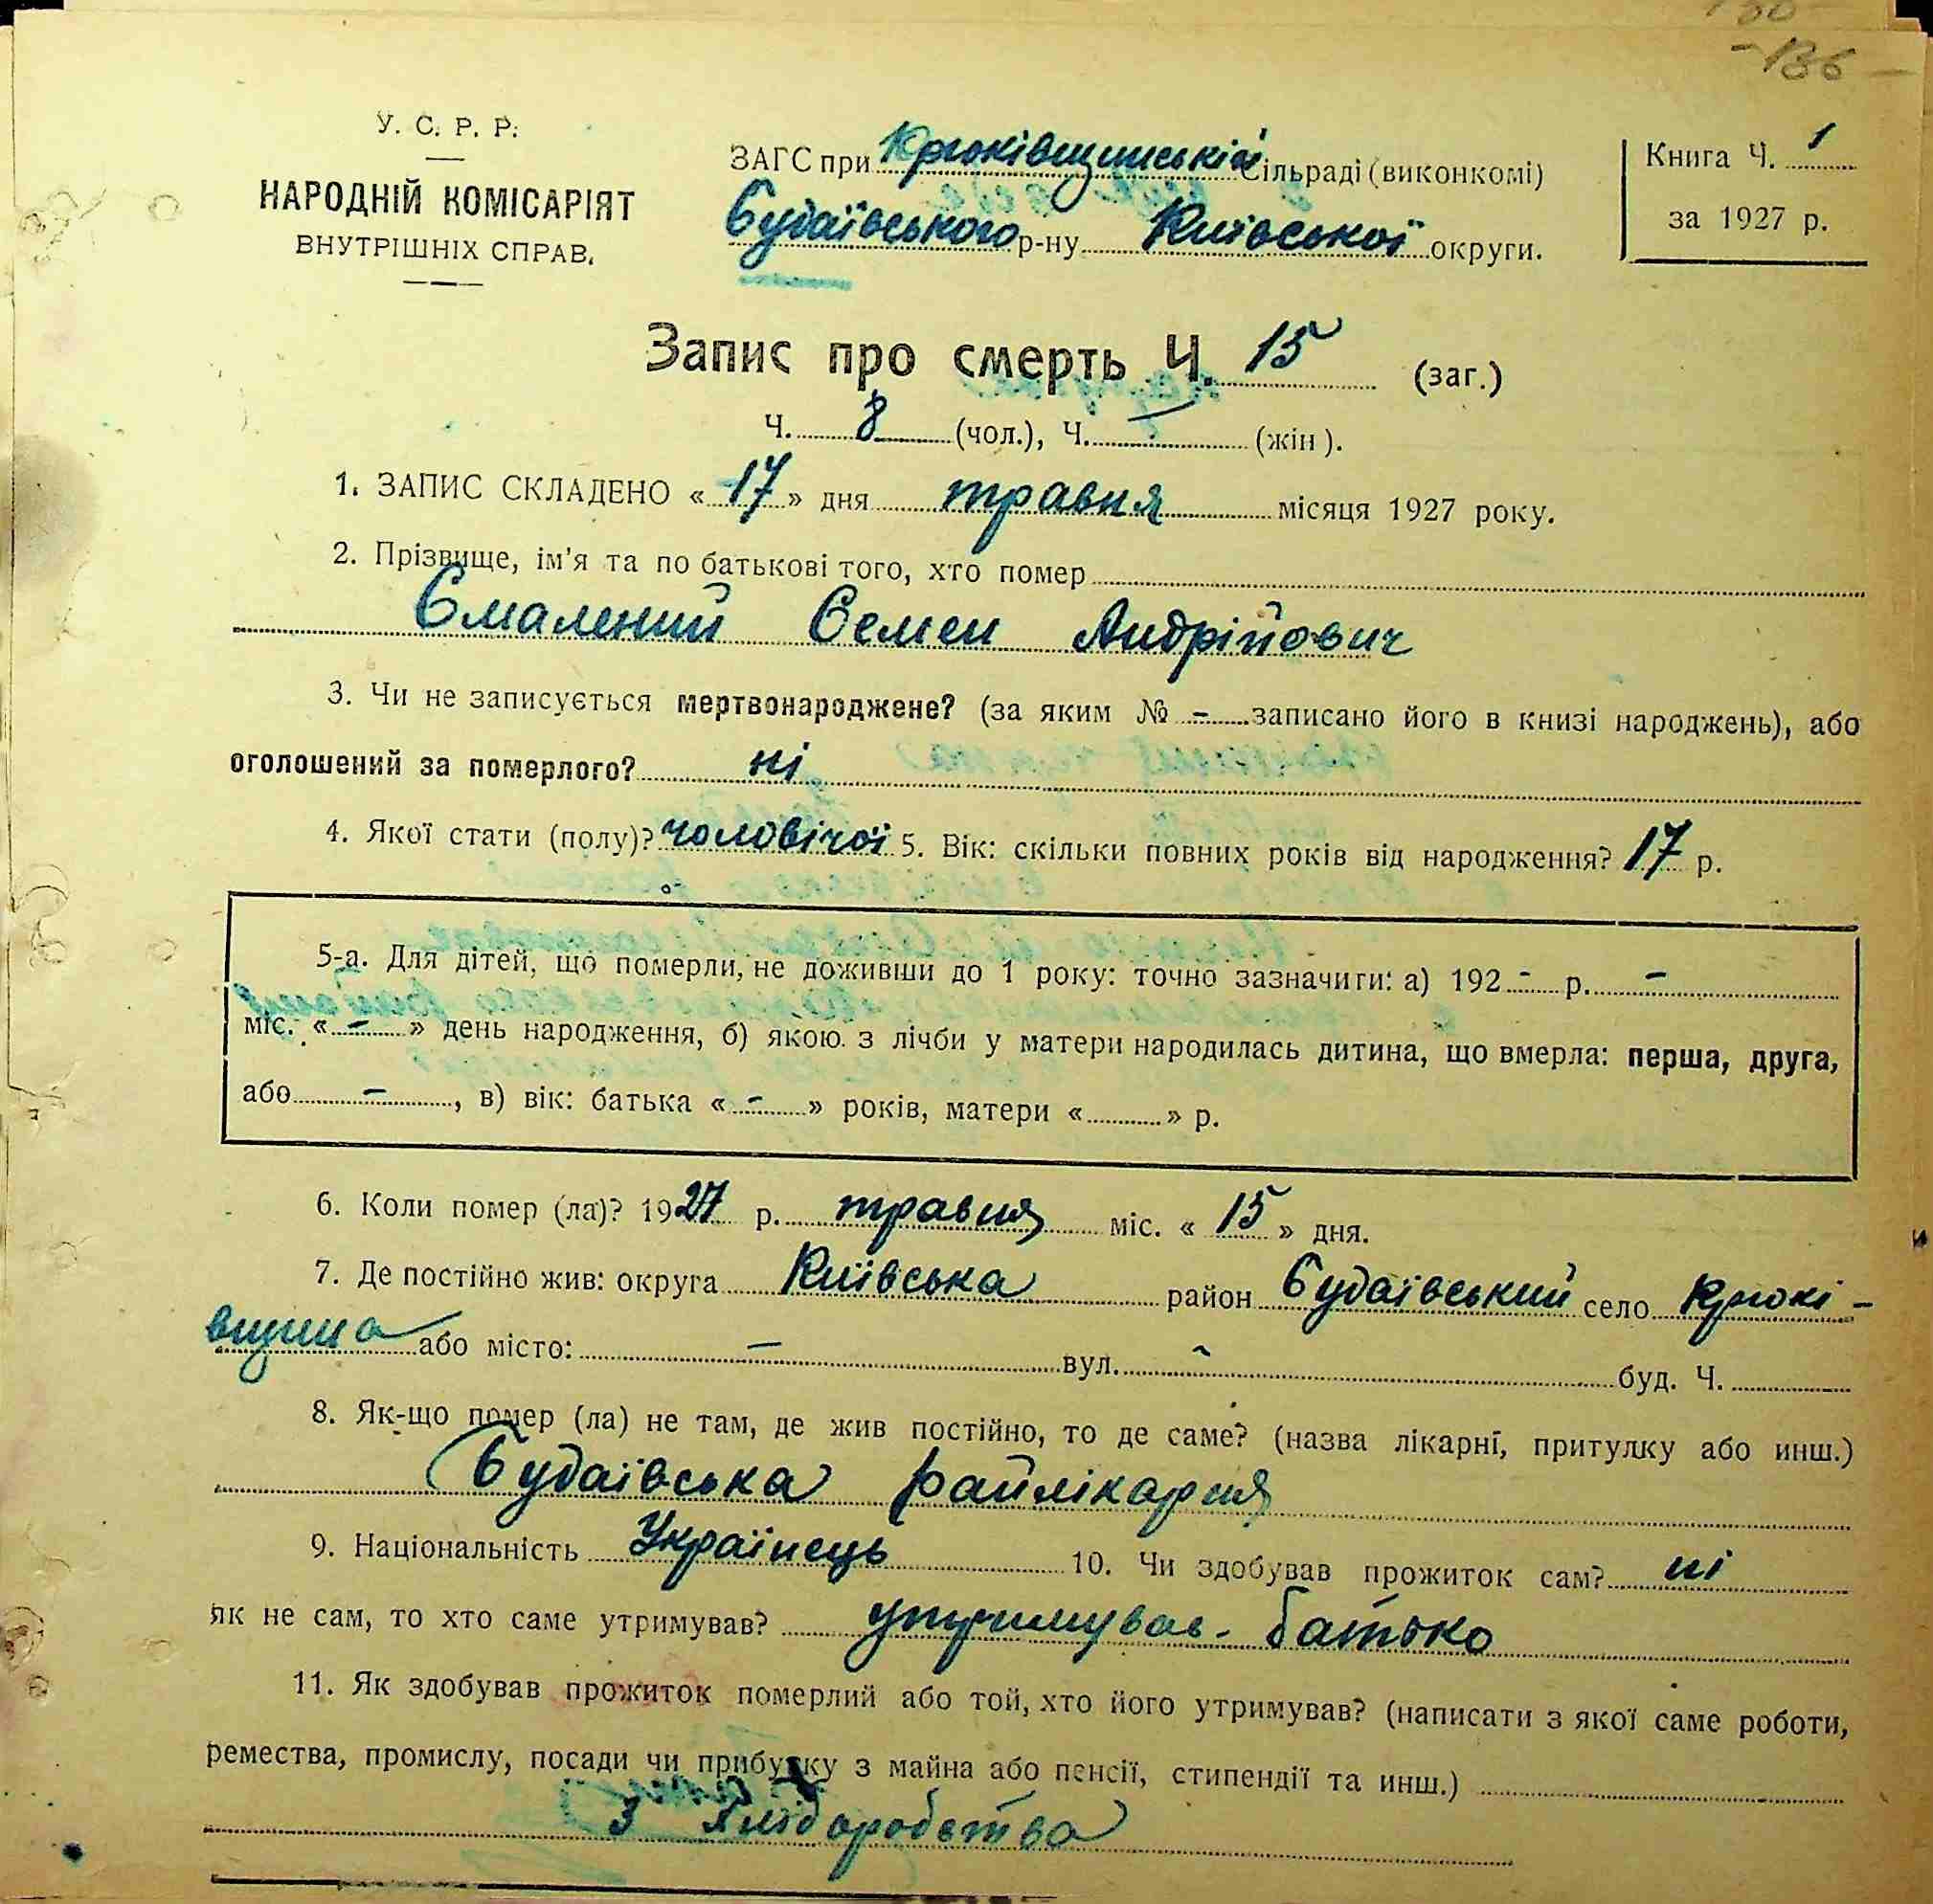 -136-
У. С. Р. Р.
НАРОДНІЙ КОМІСАРІЯТ
ВНУТРІШНІХ СПРАВ.
ЗАГС при Крюківщинській сільраді (виконкомі)
Будаївського р-ну Київської округи.
Книга Ч. 1
за 1927 р.
Запис про смерть Ч. 15 (заг.)
Ч. 8 (чол.), Ч. - (жін).
1. ЗАПИС СКЛАДЕНО « 17 » дня травня місяця 1927 року.
2. Прізвище, ім'я та по батькові того, хто помер
Смалений Семен Андрійович
3. Чи не записується мертвонароджене? (за яким № - записано його в книзі народжень), або
оголошений за померлого? ні
4. Якої стати (полу)? чоловічої 5. Вік: скільки повних років від народження? 17 р.
5-а. Для дітей, що померли, не доживши до 1 року: точно зазначити: а) 192 - р. -
міс. « - » день народження, б) якою з лічби у матери народилась дитина, що вмерла: перша, друга,
або - , в) вік: батька « - » років, матери « » р.
6. Коли помер (ла)? 1927 р. травня міс. « 15 » дня.
7. Де постійно жив: округа Київська район Будаївський село Крюкі-
вщина або місто: - вул. - буд. Ч.
8. Як-що помер (ла) не там, де жив постійно, то де саме? (назва лікарні, притулку або инш.)
Будаївська райлікарня
9. Національність Українець 10. Чи здобував прожиток сам? ні
як не сам, то хто саме утримував? утримував - батько
11. Як здобував прожиток померлий або той, хто його утримував? (написати з якої саме роботи,
ремества, промислу, посади чи прибутку з майна або пенсії, стипендії та инш.)
З хліборобства